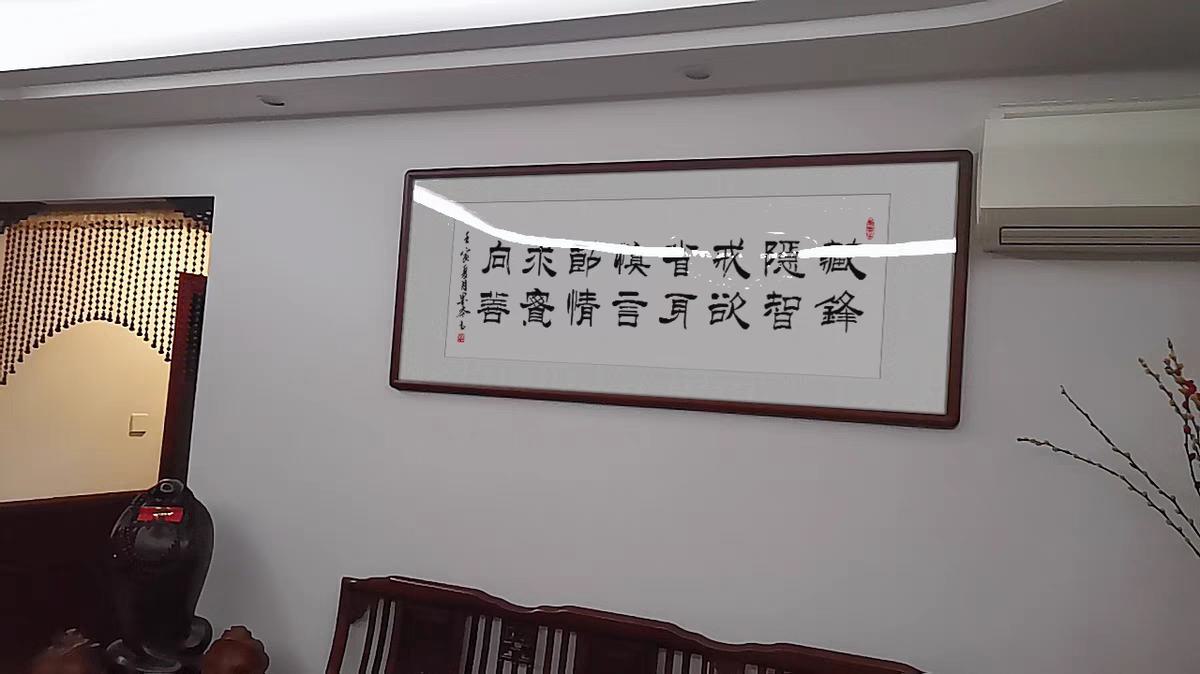 藏鋒
隱智
戒欲
省身
慎言
節情
求實
向善
壬寅夏月